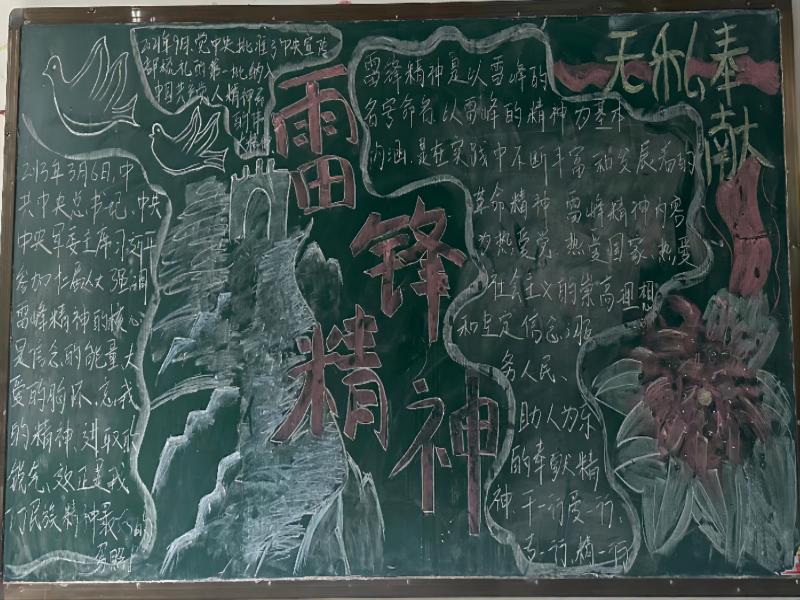 2021年9月,党中央批准了中央宣传
部梳理的第一批纳入
中国共产党人精神谱
的伟
雷
锋
精
神
无私奉
献
2013年3月6日,中
共中央总书记、中央
中央军委主席习近平
参加十二届人大 强调
雷锋精神的核心
是信念的能量大
爱的胸怀,忘我
的精神,进取的
锐气,这正是我
们民族精神最好的
写照
雷锋精神是以雷峰的
名字命名,以雷峰的精神为基本
内涵,是在实践中不断丰富和发展着的
革命精神 雷峰精神内容
为热爱党、热爱国家、热爱
社会主义的崇高理想
和坚定信念;服
务人民、
助人为乐
的奉献精
神 干一行爱一行、
专一行、精一行